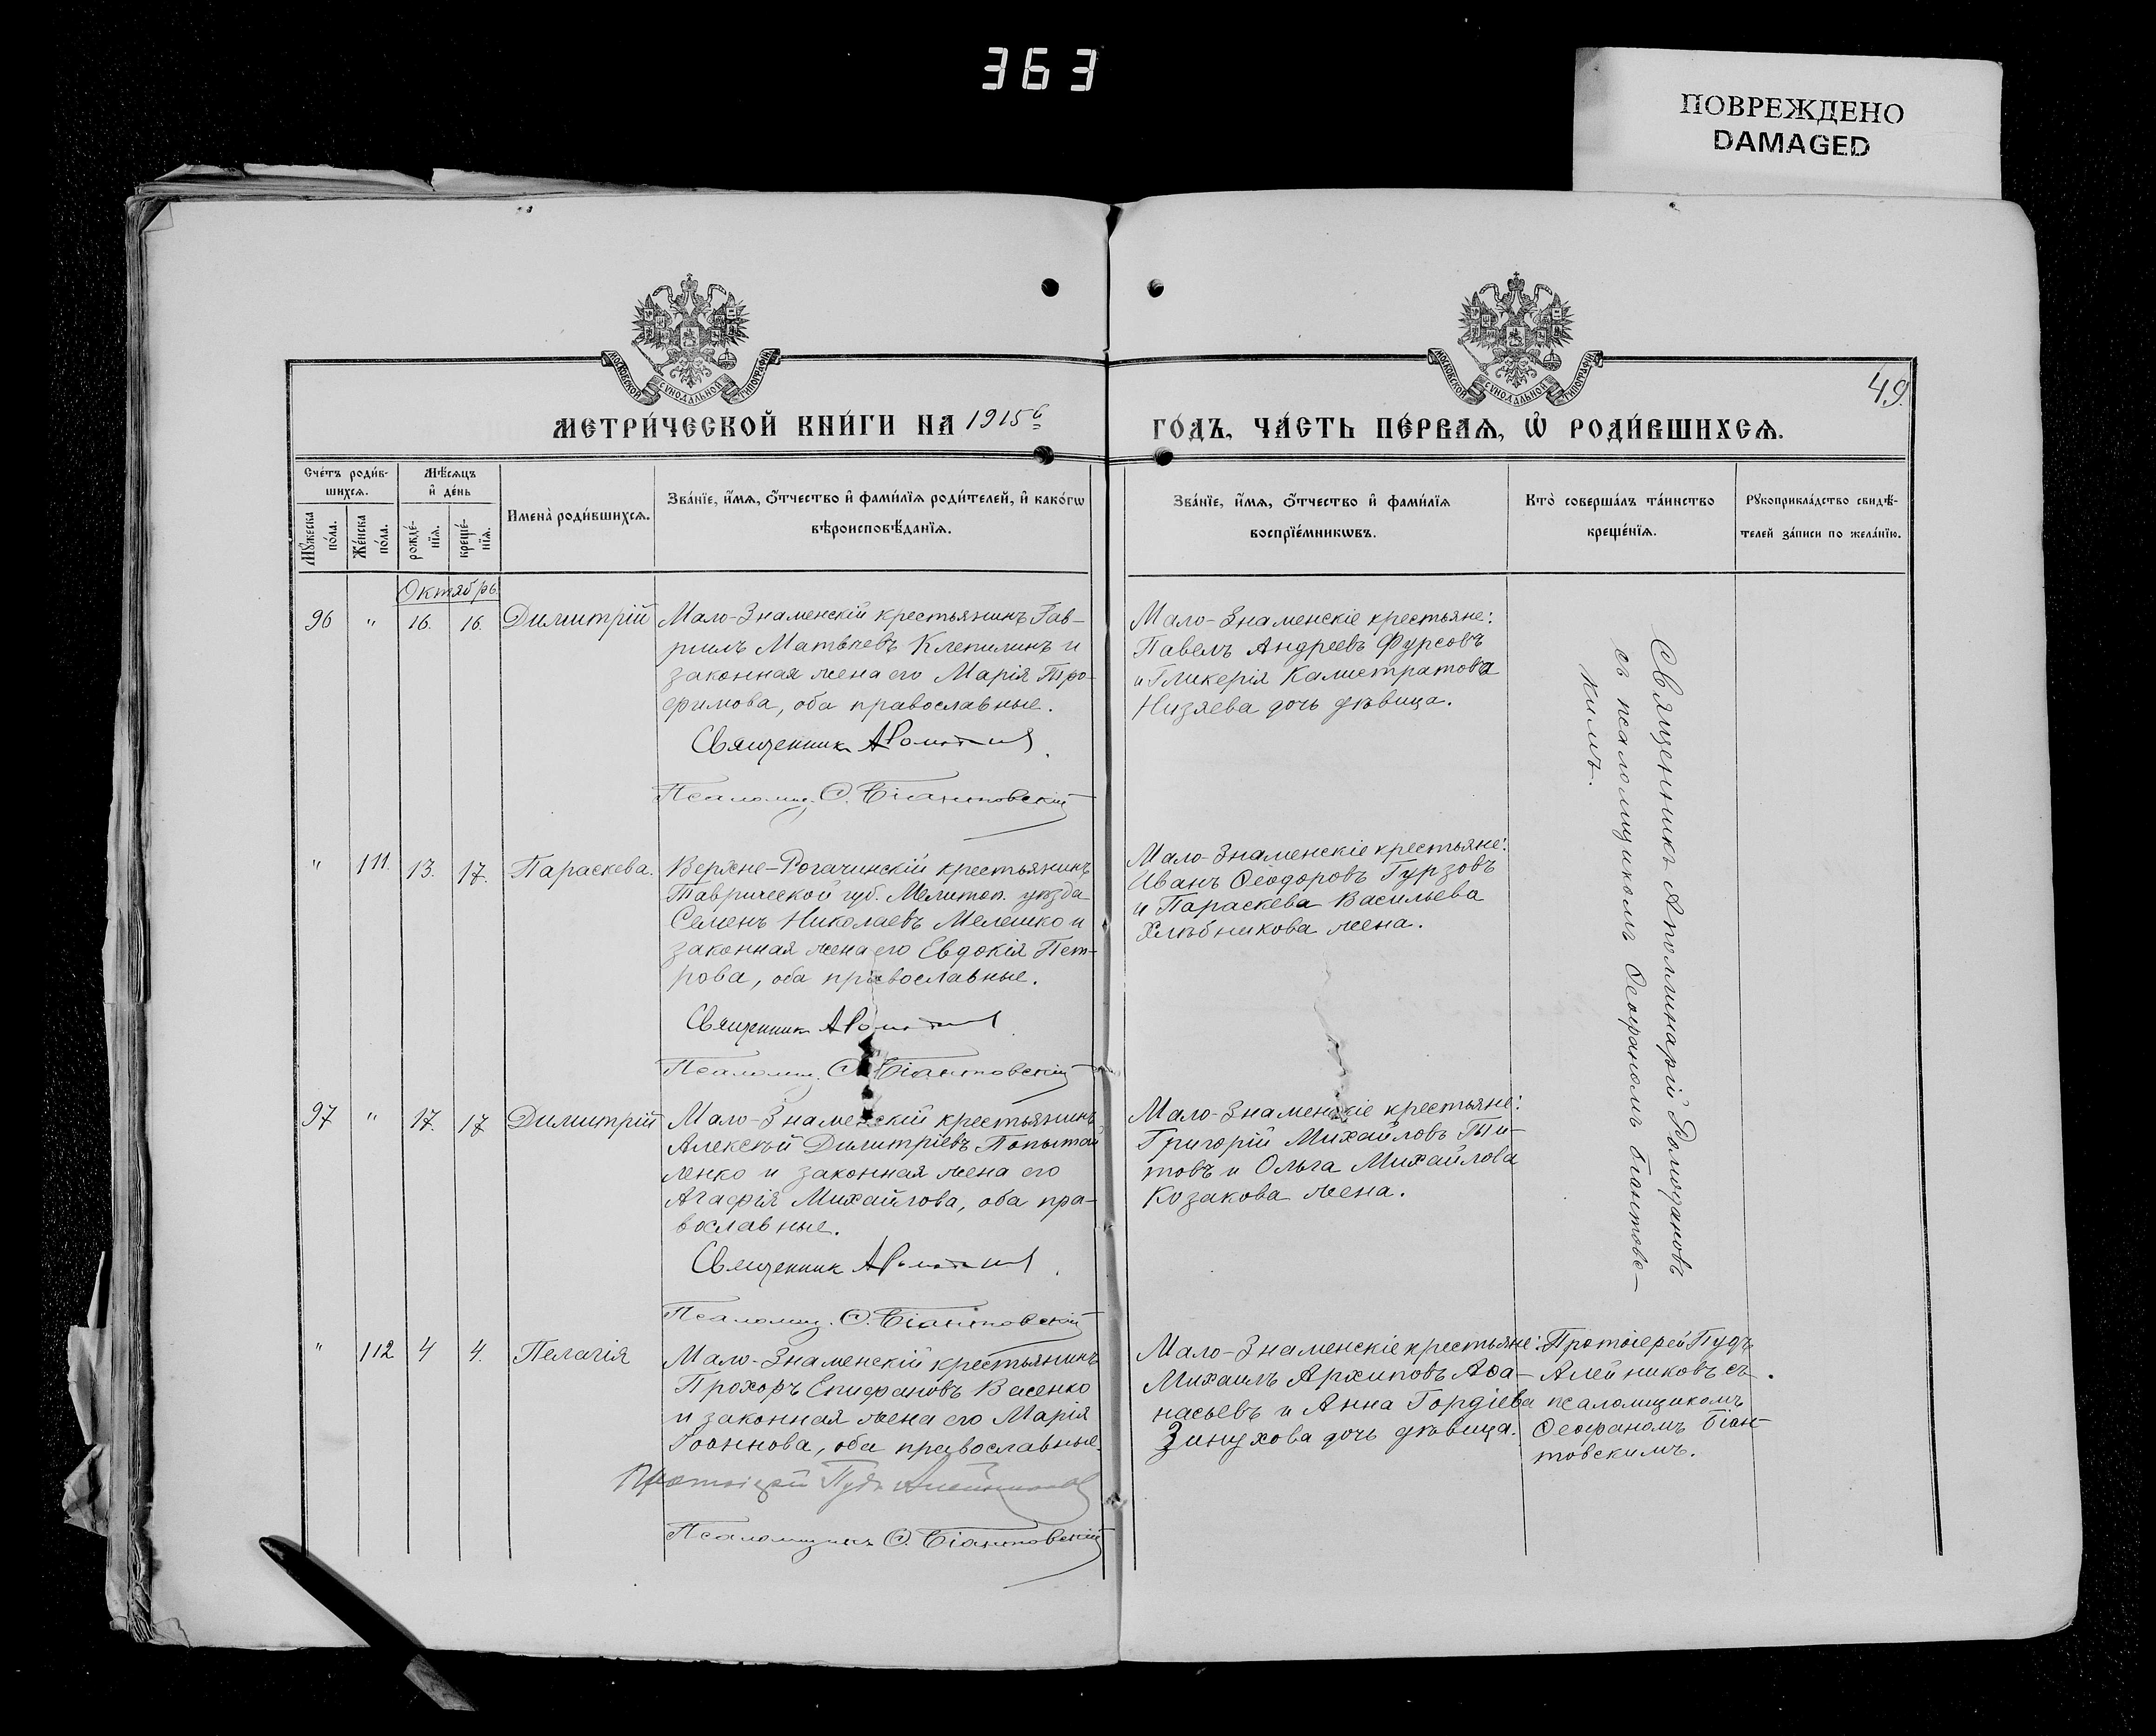 363
ПОВРЕЖДЕНО
DAMAGED
МОСКОВСКОЙ СѴНОДАЛЬНОЙ ТИПОГРАФІИ
МОСКОВСКОЙ СѴНОДАЛЬНОЙ ТИПОГРАФІИ
49.
МЕТРИ́ЧЕСКОЙ КНИ́ГИ НА 1915й
ГО́ДЪ, ЧА́СТЬ ПЕ́РВАѦ, Ѡ҆ РОДИ́ВШИХСѦ.
Сче́тъ роди́в-
шихсѧ.
Мѣ́сѧцъ
и҆ де́нь
Мꙋ́жеска
по́ла.
Же́нска
по́ла.
рожде́-
нїѧ.
креще́-
нїѧ.
Имена̀ роди́вшихсѧ.
Зва́нїе, и҆́мѧ, ѻ҆́тчество и҆ фами́лїѧ роди́телей, и҆ како́гѡ
вѣроисповѣ́данїѧ.
Зва́нїе, и҆́мѧ, ѻ҆́тчество и҆ фами́лїѧ
воспрїе́мникѡвъ.
Кто̀ соверша́лъ та́инство
креще́нїѧ.
Рꙋкоприкла́дство свидѣ́-
телей за́писи по жела́нїю.
Октябрь
96 " 16. 16. Димитрій
Мало-Знаменскій крестьянинъ Гав-
риилъ Матвѣевъ Клепилинъ и
законная жена его Марія Тро-
фимова, оба православные.
Священник А Ромо
Псаломщ. Ѳ. Біантовскій
Мало-Знаменскіе крестьяне:
Павелъ Андреевъ Фурсовъ
и Гликерія Калистратова
Низяева дочь дѣвица.
Священникъ Аполлинарій Ромодановъ
съ псаломщикомъ Ѳеофаномъ Біантовс-
кимъ.
" 111. 13. 17. Параскева.
Верхне-Рогачинскій крестьянинъ
Таврической губ. Мелитоп. уѣзда
Семенъ Николаевъ Мелешко и
законная жена его Евдокія Пет-
рова, оба православные.
Священник А Ромо
Псаломщ. Ѳ. Біантовскій
Мало-Знаменскіе крестьяне:
Иванъ Ѳеодоровъ Гурзовъ
и Параскева Васильева
Хлѣбникова жена.
97 " 17. 17 Димитрій
Мало-Знаменскій крестьянинъ
Алексѣй Димитріевъ Попытай
ленко и законная жена его
Агафія Михайлова, оба пра-
вославные.
Священник А Ромо
Псаломщ. Ѳ. Біантовскій
Мало-Знаменскіе крестьяне:
Григорій Михайловъ Ти-
товъ и Ольга Михайлова
Козакова жена.
" 112 4 4. Пелагія
Мало-Знаменскій крестьянинъ
Прохоръ Епифановъ Васенко
и законная жена его Марія
Іоаннова, оба православные.
Протоіерей Пудъ Алейников
Псаломщикъ Ѳ. Біантовскій
Мало-Знаменскіе крестьяне:
Михаилъ Архиповъ Аѳа-
насьевъ и Анна Гордіева
Зинухова дочь дѣвица.
Протоіерей Пудъ
Алейниковъ съ
псаломщикомъ
Ѳеофаномъ Біан-
товскимъ.